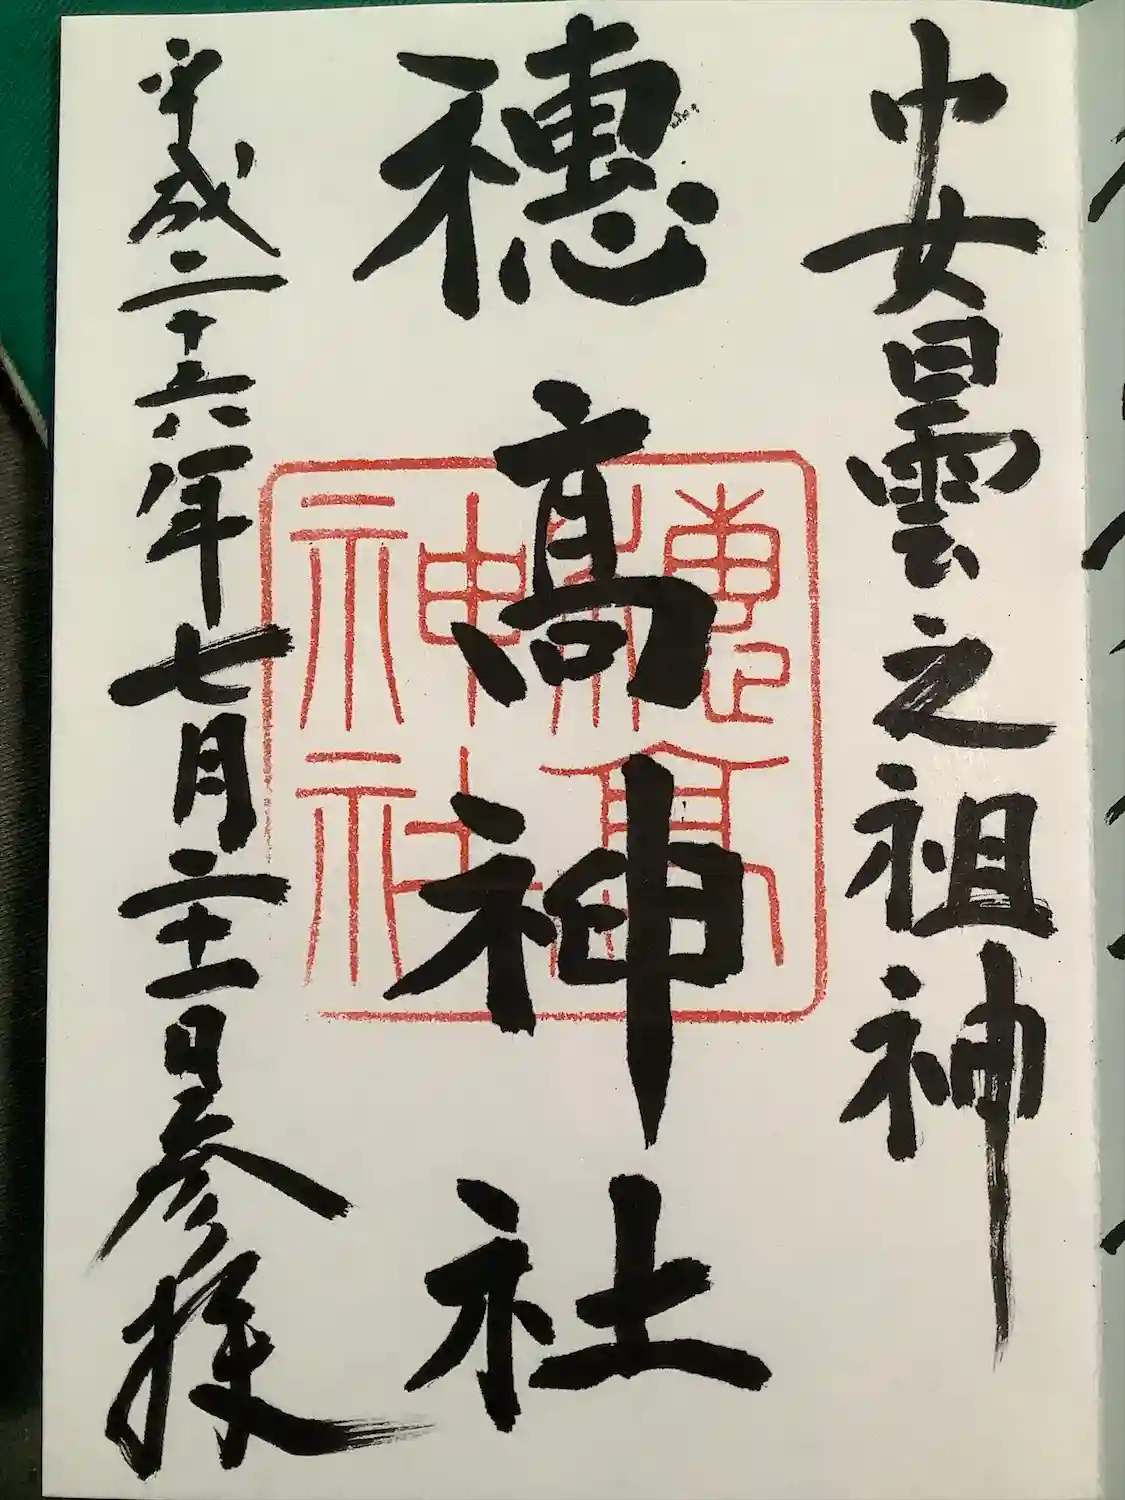 安曇之祖神
穗髙神社
穗髙
神社
平成二十六年七月二十一日参拝